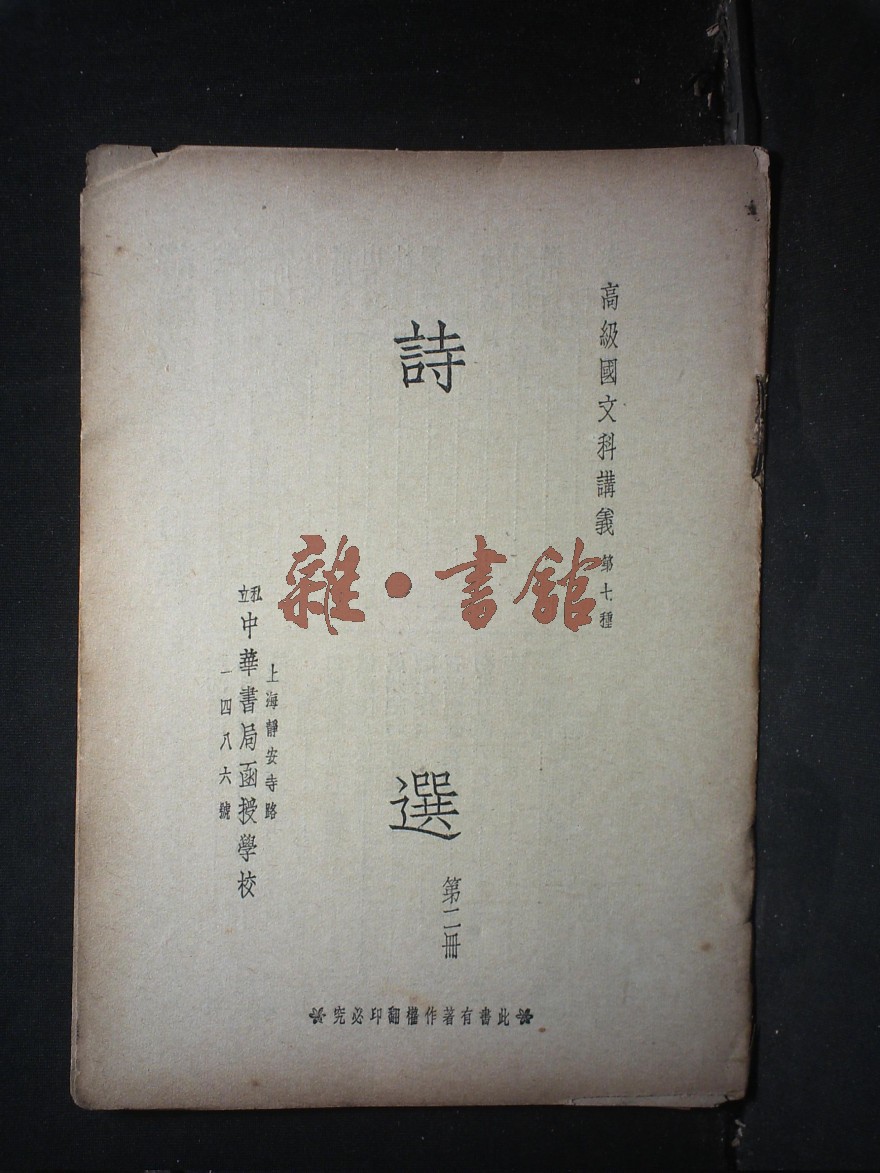 高級國文科講義 第七種
詩選
第二冊
上海靜安寺路
私立中華書局函授學校
一四八六號
此書有著作權翻印必究
雜·書館